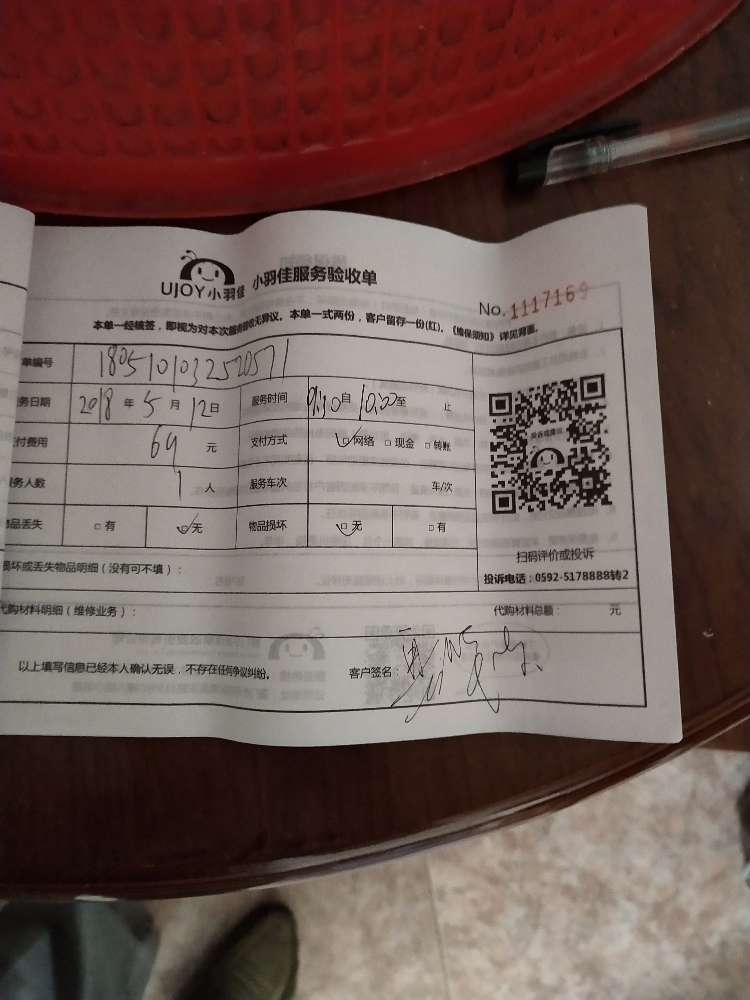 UJOY小羽佳 小羽佳服务验收单
No. 1117169
本单一经核签，即视为对本次服务无异议。本单一式两份，客户留存一份(红)。《维保须知》详见背面。
单编号 1805101032520571
务日期 2018 年 5 月 12 日 服务时间 9:10 自 10:00 至 止
付费用 69 元 支付方式 ☑网络 □现金 □转账
服务人数 1 人 服务车次 车/次
物品丢失 □有 ☑无 物品损坏 ☑无 □有
投诉或建议
扫码评价或投诉
投诉电话：0592-5178888转2
损坏或丢失物品明细（没有可不填）：
代购材料明细（维修业务）： 代购材料总额： 元
以上填写信息已经本人确认无误，不存在任何争议纠纷。 客户签名：